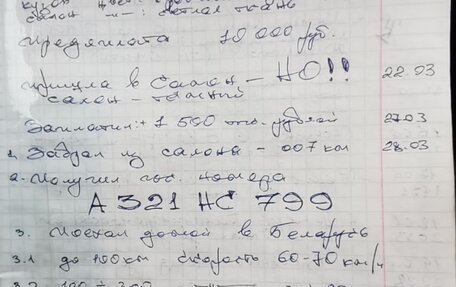 салон —"—: светлая ткань
Предоплата 10 000 руб.
пришла в Салон – НО!! 22.03
салон – темный
Заплатил: + 1 500 т. рублей 27.03
1. Забрал из салона – 007 км 28.03
2. Получил гос. номера
А 321 НС 799
3. Поехал домой в Беларусь
3.1 до 100 км скорость 60-70 км/ч
3.2 100 ÷ 300